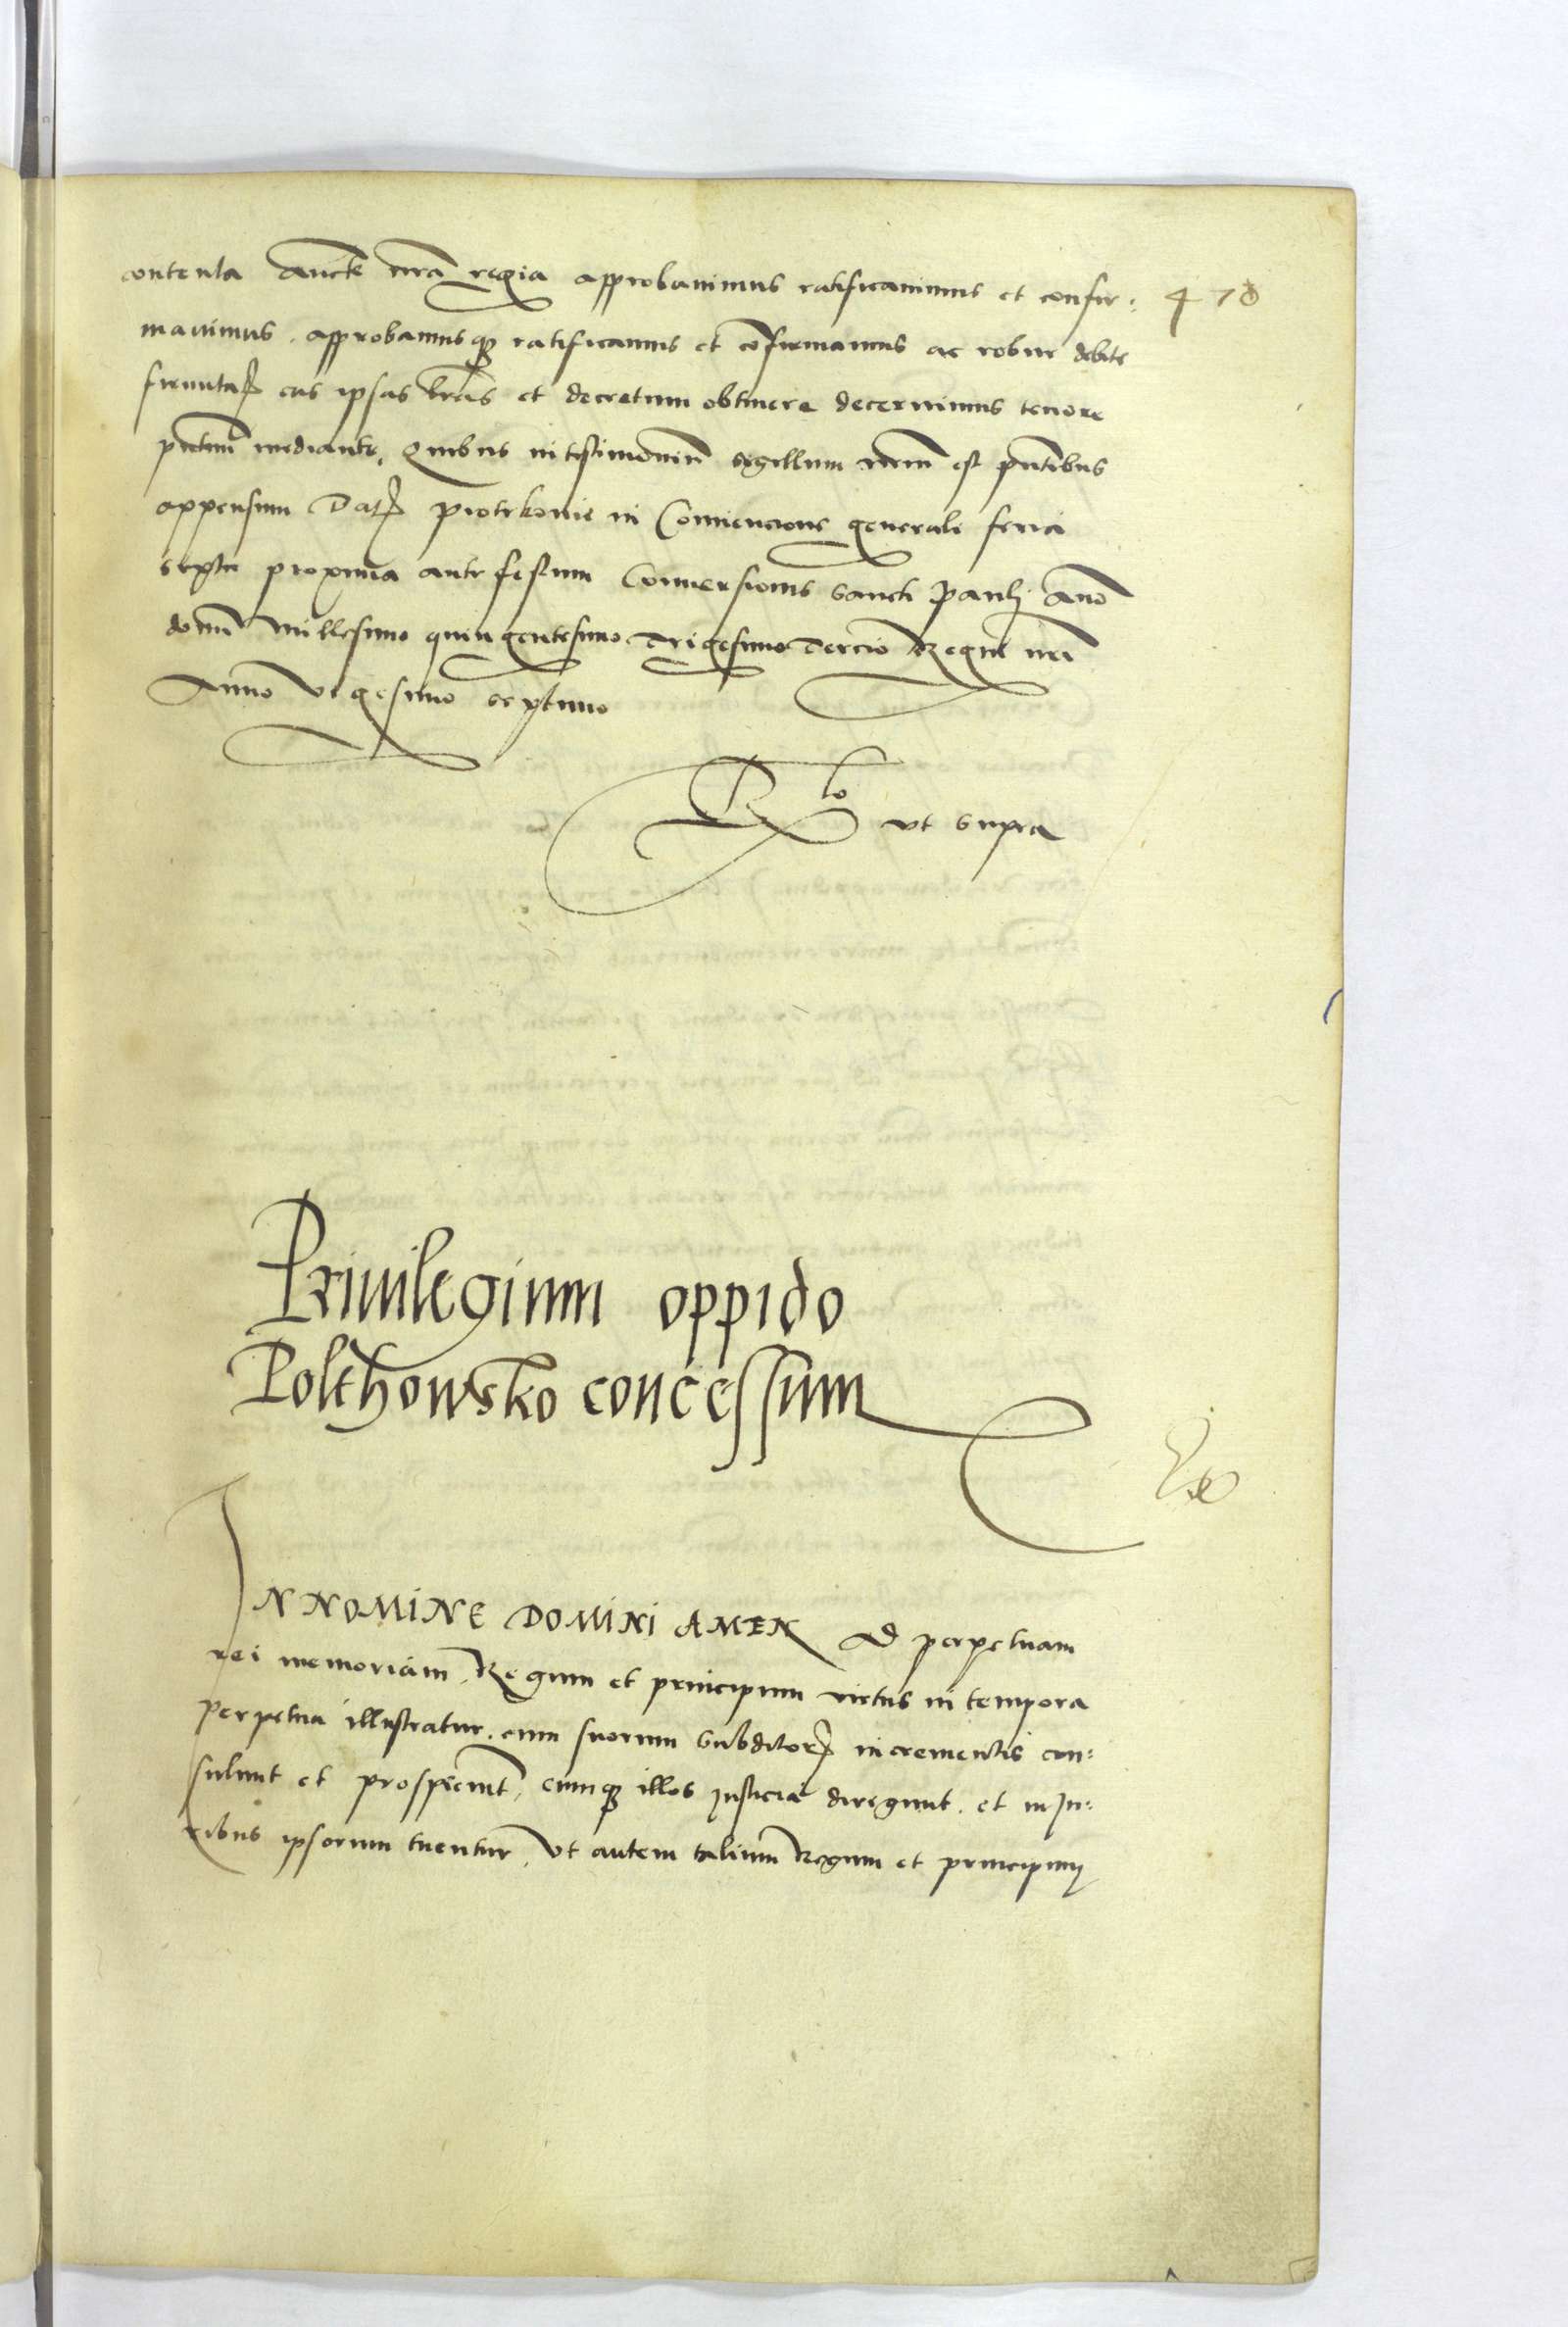 contenta Aucte nra regia approbavimus ratificavimus et confir: 478
mavimus . approbamusq3 ratificamus et cofirmamus ac robur debite
firmitat eas ipsas lras et decretum obtinere decernimus tenore
pntium mediante, Quibus in testimoniu sigillum nrm est pntibus
appensum Dat Piotrkovie in Conventione generali feria
sexta proxima ante festum Conversionis sancti Pauli Ano
domi millesimo quingentesimo Trigesimo Tercio Regni nri
Anno vigesimo septimo
Rlo ut supra
Privilegium oppido
Polthowsko concessum
IN NOMINE DOMINI AMEN Ad perpetuam
rei memoriam, Regum et principum virtus in tempora
perpetua illustratur. cum suorum subditor incrementis con:
sulunt et prospiciunt, cumq3 illos justicia dirigunt. et in ju:
ribus ipsorum tuentur, Ut autem talium Regum et principum